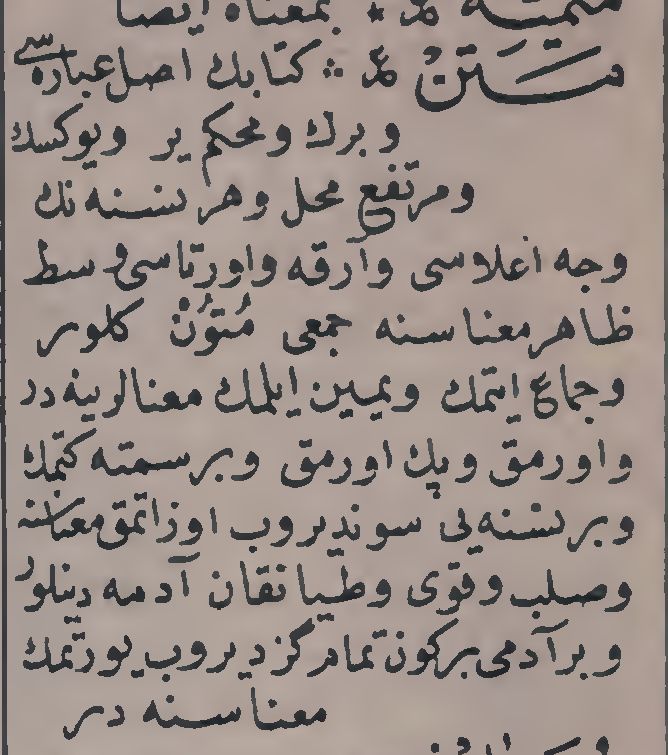 بمعناه ايضا
مَتنْ كتابك اصل عباره سى
وبرك ومحكم ير ويوكسك
ومرتفع محل وهر نسنه نك
وجه اعلاسى وآرقه واورتاسى وسط
ظاهر معناسنه جمعى مُتوُنْ كلور
وجماع ايتمك ويمين ايلمك معنالرينه در
واورمق وپك اورمق وبر سمته كتمك
وبر نسنه يى سوندیروب اوزاتمق معناسنه
وصلب وقوى وطيانقان آدمه دينلور
وبر آدمى بر كون تمام كزديروب يورتمك
معناسنه در